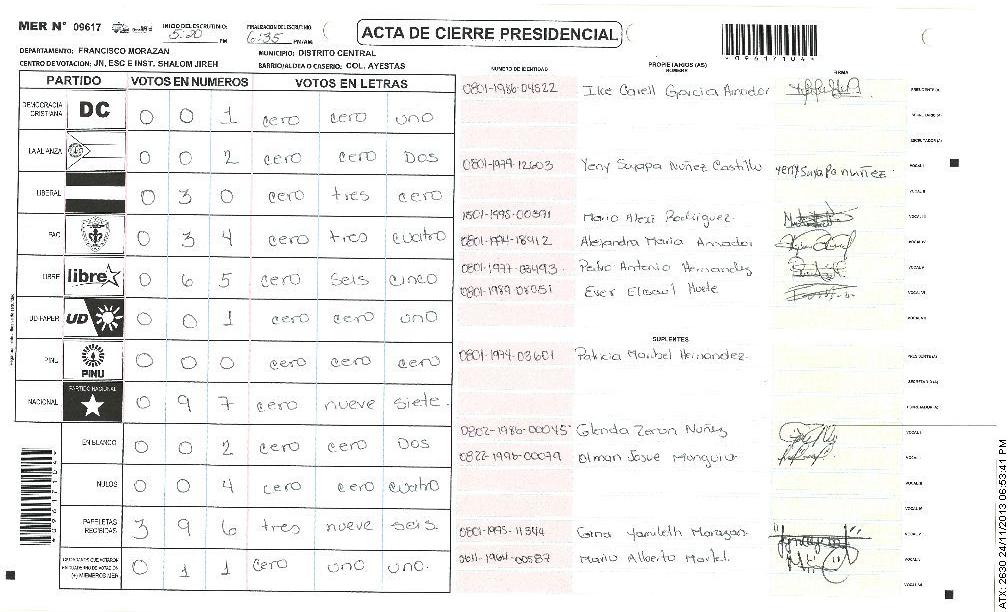 MER N° 09617
INICIO DEL ESCRUTINIO: 5:20 PM
FINALIZACION DEL ESCRUTINIO 6:35 PM/AM
ACTA DE CIERRE PRESIDENCIAL
*09617104*
DEPARTAMENTO: FRANCISCO MORAZAN
MUNICIPIO: DISTRITO CENTRAL
CENTRO DE VOTACION: JN, ESC E INST. SHALOM JIREH
BARRIO/ALDEA O CASERIO: COL. AYESTAS
PARTIDO VOTOS EN NUMEROS VOTOS EN LETRAS
DEMOCRACIA CRISTIANA DC 0 0 1 cero cero uno
LA ALIANZA 0 0 2 cero cero Dos
LIBERAL 0 3 0 cero tres cero
PAC 0 3 4 cero tres cuatro
LIBRE libre 0 6 5 cero seis cinco
UD-FAPER UD 0 0 1 cero cero uno
PINU PINU 0 0 0 cero cero cero
NACIONAL PARTIDO NACIONAL 0 9 7 cero nueve siete.
EN BLANCO 0 0 2 cero cero Dos
NULOS 0 0 4 cero cero cuatro
PAPELETAS RECIBIDAS 3 9 6 tres nueve seis.
(+) MIEMBROS MER 0 1 1 cero uno uno.
NUMERO DE IDENTIDAD PROPIETARIOS (AS) NOMBRE FIRMA
0801-1986-04522 Garcia Amador PRESIDENTE (A)
SECRETARIO (A)
ESCRUTADOR (A)
0801-1979-12603 Yeny Suyapa Nuñez Castillo yeny suyapa nuñez VOCAL I
VOCAL II
1501-1995-00391 Mario Alexi Rodriguez. VOCAL III
0801-1974-18912 Alejandra Maria Amador VOCAL IV
0801-1977-03493. Pedro Antonio Hernandez VOCAL V
0801-1989-08051 Ever VOCAL VI
VOCAL VII
SUPLENTES
0801-1974-03601 Patricia Maribel Hernandez. PRESIDENTE (A)
SECRETARIO (A)
ESCRUTADOR (A)
0802-1986-00045 Glenda Zeron Nuñez VOCAL I
0822-1996-00079 Olman Josue
VOCAL III
VOCAL IV
0801-1995-11344 Gina Yamileth Morazan. VOCAL V
Mario Alberto Martel.
ATX: 2630 24/11/2013 06:53:41 PM